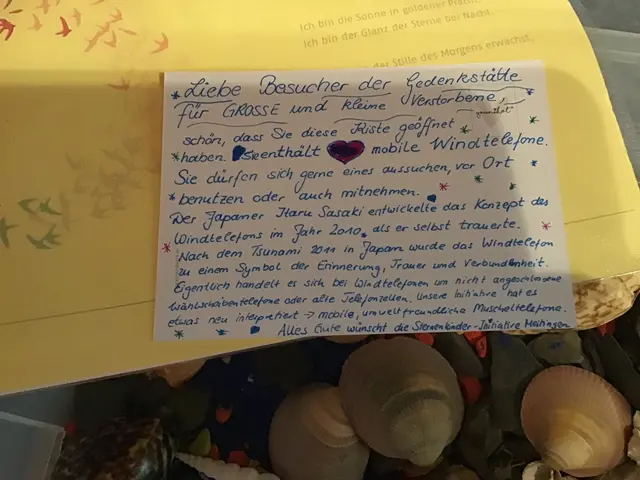 Ich bin die Sonne in goldener Pracht,
Ich bin der Glanz der Sterne bei Nacht.
der Stille des Morgens erwachst,
Liebe Besucher der Gedenkstätte
für GROSSE und kleine Verstorbene,
schön, dass Sie diese Kiste geöffnet
haben. Sie enthält mobile Windtelefone.
Sie dürfen sich gerne eines aussuchen, vor Ort
benutzen oder auch mitnehmen.
Der Japaner Itaru Sasaki entwickelte das Konzept des
Windtelefons im Jahr 2010, als er selbst trauerte.
Nach dem Tsunami 2011 in Japan wurde das Windtelefon
zu einem Symbol der Erinnerung, Trauer und Verbundenheit.
Eigentlich handelt es sich bei Windtelefonen um nicht angeschlossene
Wählscheibentelefone oder alte Telefonzellen. Unsere Initiative hat es
etwas neu interpretiert → mobile, umweltfreundliche Muscheltelefone.
Alles Gute wünscht die Sternenkinder-Initiative Meitingen